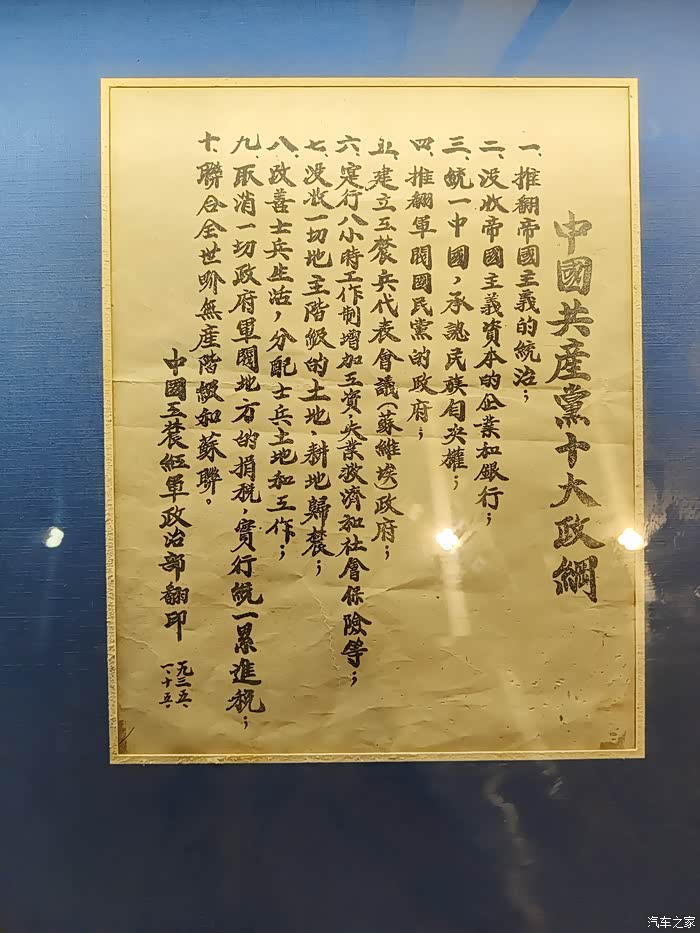 中國共産黨十大政綱
一、推翻帝國主義的統治；
二、没收帝國主義資本的企業和銀行；
三、統一中國，承認民族自决權；
四、推翻軍閥國民黨的政府；
五、建立工農兵代表會議（蘇維埃）政府；
六、實行八小時工作制增加工資失業救濟和社會保險等；
七、没收一切地主階級的土地、耕地歸農；
八、改善士兵生活，分配士兵土地和工作；
九、取消一切政府軍閥地方的捐税，實行統一累進税；
十、聯合全世界無産階級和蘇聯。
中國工農紅軍政治部翻印
一九三五、
一、十五、
汽车之家